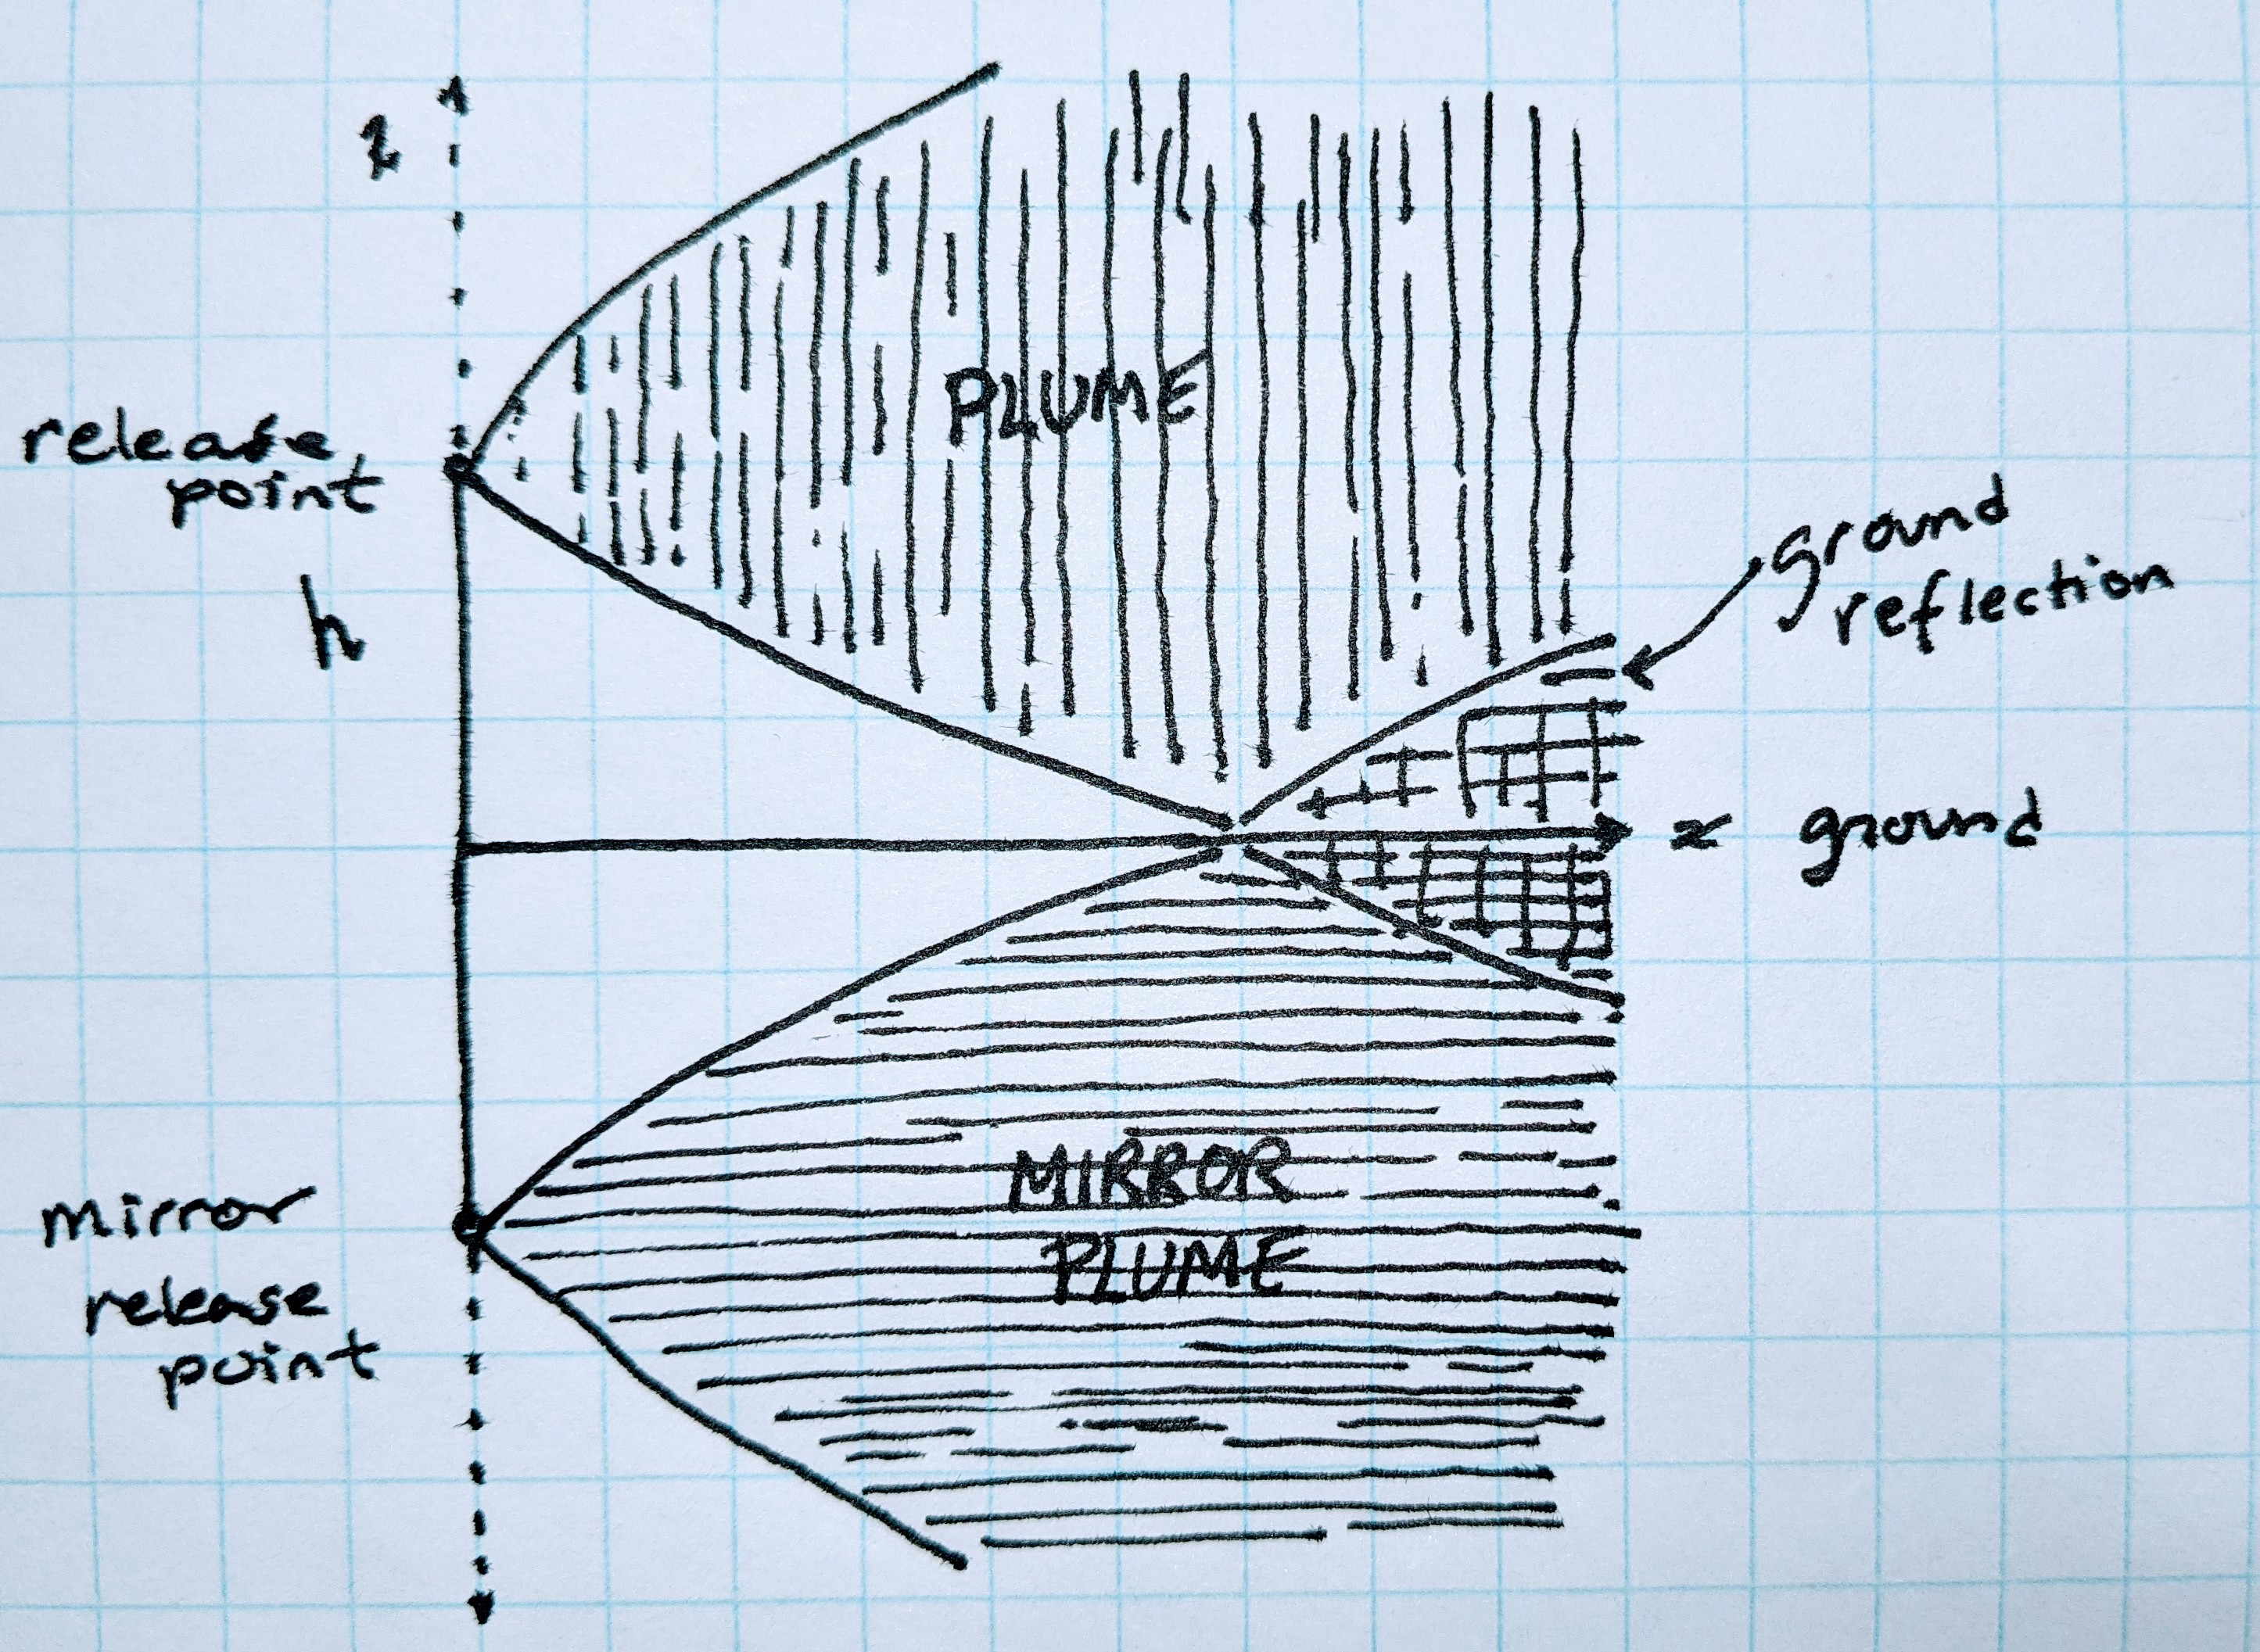 z
release
point
PLUME
h
ground
reflection
x ground
mirror
release
point
MIRROR
PLUME